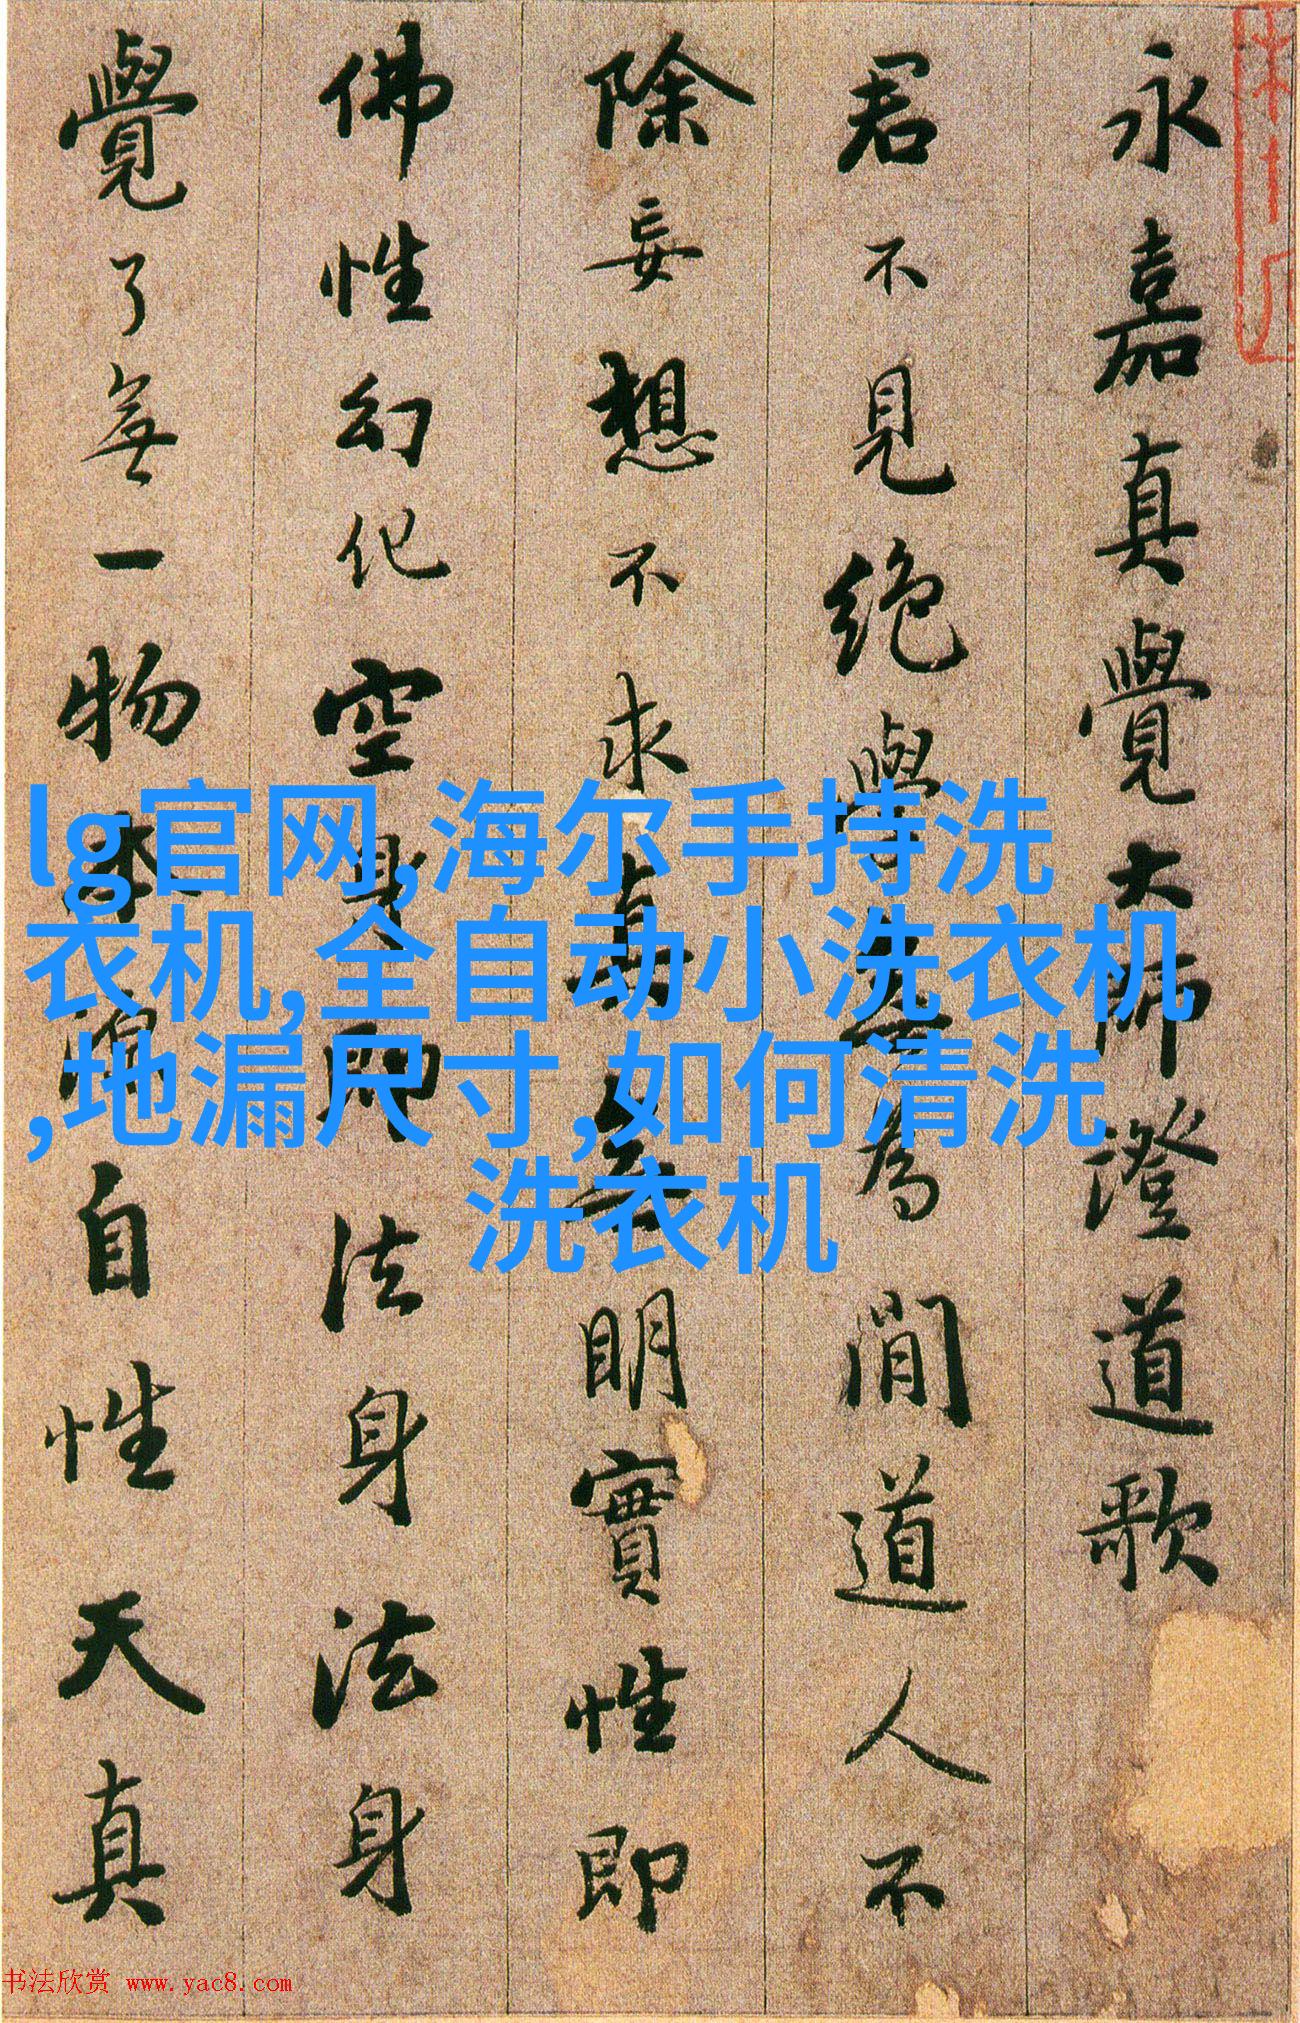 永嘉真覺大師澄道歌
君不見絶學無為閒道人不
除妄想不求真無明實性即
佛性幻化空身即法身法身
覺了無一物本源自性天真
lg官网,海尔手持洗
衣机,全自动小洗衣机
,地漏尺寸,如何清洗
洗衣机
书法欣赏 www.yac8.com